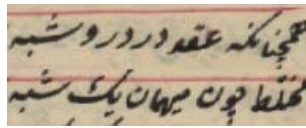 همچنانکه عقد در در و شبه
مختلط چون میهمان یک شبه